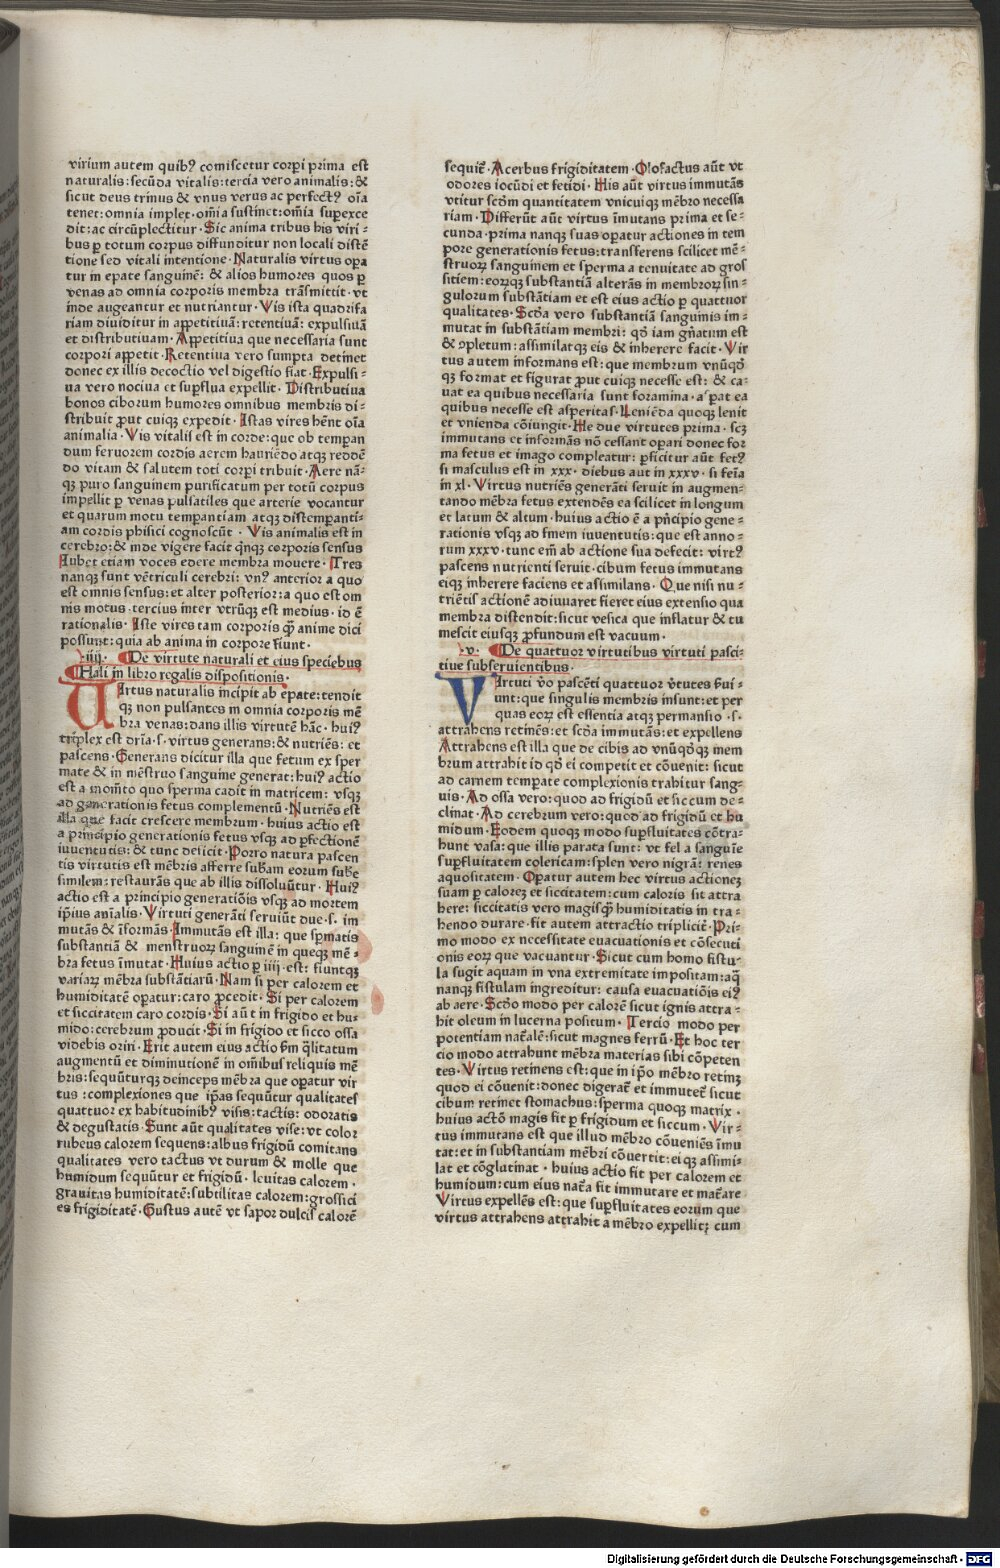 virium autem quibꝰ comiscetur corpī prima est
naturalis: secūda vitalis: tercia vero animalis: &
sicut deus trinus & vnus verus ac perfectꝰ oīa
tenet: omnia implet· om̄ia sustinet: om̄ia superexce
dit: ac circūplectitur· Sic anima tribus his viri⸗
bus ꝑ totum corpus diffunditur non locali distē
tione sed vitali intentione· Naturalis virtus oꝑa
tur in epate sanguinē: & alios humores quos ꝑ
venas ad omnia corporis membra trāsmittit· vt
inde augeantur et nutriantur· Vis ista quadrifa
riam diuiditur in appetitiuā: retentiuā: expulsiuā
et distributiuam· Appetitiua que necessaria sunt
corpori appetit· Retentiua vero sumpta detinet
donec ex illis decoctio vel digestio fiat· Expulsi⸗
ua vero nociua et suꝑflua expellit· Distributiua
bonos ciborum humores omnibus membris di⸗
stribuit ꝓut cuiqꝫ expedit· Istas vires hēnt oīa
animalia· Vis vitalis est in corde: que ob temꝑan
dum feruorem cordis aerem hauriēdo atqꝫ reddē
do vitam & salutem toti corpī tribuit· Aere nā⸗
qꝫ puro sanguinem purificatum per totū corpus
impellit ꝑ venas pulsatiles que arterie vocantur
et quarum motu temꝑantiam atqꝫ distemꝑanti⸗
am cordis phisici cognoscūt· Vis animalis est in
cerebro: & inde vigere facit qn̄qꝫ corporis sensus
Iubet etiam voces edere membra mouere· Tres
nanqꝫ sunt vētriculi cerebri: vnꝰ anterior a quo
est omnis sensus: et alter posterior: a quo est om
nis motus· tercius inter vtrūqꝫ est medius· id ē
rationalis· Iste vires tam corporis qꝫ̄ anime dici
possunt: quia ab anima in corpore fiunt·
·iiij· De virtute naturali et eius speciebus
Hali in libro regalis dispositionis·
VIrtus naturalis incipit ab epate: tendit
qꝫ non pulsantes in omnia corporis mē
bra venas: dans illis virtutē hāc· huiꝰ
triplex est dr̄ia·s· virtus generans: & nutriēs: et
pascens· Generans dicitur illa que fetum ex sper
mate & in mēstruo sanguine generat: huiꝰ actio
est a mom̄to quo sperma cadit in matricem: vsqꝫ
ad generationis fetus complementū· Nutriēs est
illa que facit crescere membrum· huius actio est
a principio generationis fetus vsqꝫ ad ꝑfectionē
iuuentutis: & tunc deficit· Porro natura pascen
tis virtutis est mēbris afferre sub̄am eorum sub̄e
similem: restaurās que ab illis dissoluūtur· Huiꝰ
actio est a principio generatiōis vsqꝫ ad mortem
ip̄ius anīalis· Virtuti generāti seruiūt due·s· im
mutās & īformās· Immutās est illa: que sꝑmatis
substantiā & menstruoꝝ sanguinē in queqꝫ mē⸗
bra fetus īmutat· Huius actio ꝑ iiij· est: fiuntqꝫ
variaꝝ mēbra substātiarū· Nam si per calorem et
humiditatē oꝑatur: caro ꝓcedit· Si per calorem
et siccitatem caro cordis· Si aūt in frigido et hu⸗
mido: cerebrum ꝓducit· Si in frigido et sicco ossa
videbis oriri· Erit autem eius actio ẜm qͥlitatum
augmentū et diminutionē in om̄ibus reliquis mē
bris: sequūturqꝫ deinceps mēbra que oꝑatur vir
tus: complexiones que ip̄as sequūtur qualitates
quattuor ex habitudinibꝰ visis: tactis: odoratis
& degustatis· Sunt aūt qualitates vise: vt color
rubeus calorem sequens: albus frigidū comitans
qualitates vero tactus vt durum & molle que
humidum sequūtur et frigidū· leuitas calorem·
grauitas humiditatē: subtilitas calorem: grossici
es frigiditatē· Gustus autē vt sapor dulcis calorē
sequit᷑· Acerbus frigiditatem· Olofactus aūt vt
odores iocūdi et fetidi· His aūt virtus immutās
vtitur scd̄m quantitatem vnicuiqꝫ mēbro necessa
riam· Differūt aūt virtus īmutans prima et se⸗
cunda· prima nanqꝫ suas oꝑatur actiones in tem
pore generationis fetus: transferens scilicet mē⸗
struoꝝ sanguinem et sperma a tenuitate ad gros
sitiem: eoꝝqꝫ substantiā alterās in membroꝝ sin⸗
gulorum substātiam et est eius actio ꝑ quattuor
qualitates· Scd̄a vero substantiā sanguinis im⸗
mutat in substātiam membri: qd̄ iam gn̄atum est
& ꝯpletum: assimilatqꝫ eis & inherere facit· Vir
tus autem informans est: que membrum vnūqd̄
qꝫ format et figurat ꝓut cuiqꝫ necesse est: & ca⸗
uat ea quibus necessaria sunt foramina· aſpat ea
quibus necesse est asperitas· Leniēda quoqꝫ lenit
et vnienda cōiungit· He due virtutes prima· scꝫ
immutans et informās nō cessant oꝑari donec for
ma fetus et imago compleatur: ꝑficitur aūt fetꝰ
si masculus est in xxx· diebus aut in xxxv· si feīa
in xl· Virtus nutriēs generāti seruit in augmen⸗
tando mēbra fetus extendēs ea scilicet in longum
et latum & altum· huius actio ē a pn̄cipio gene⸗
rationis vsqꝫ ad finem iuuentutis: que est anno⸗
rum xxxv· tunc em̄ ab actione sua defecit: virtꝰ
pascens nutrienti seruit· cibum fetus immutans
eiqꝫ inherere faciens et assimilans· Que nisi nu⸗
triētis actionē adiuuaret fieret eius extensio qua
membra distendit: sicut vesica que inflatur & tu
mescit eiusqꝫ ꝓfundum est vacuum·
·v· De quattuor virtutibus virtuti pasci⸗
tiue subseruientibus·
VIrtuti v̄o pascēti quattuor v̄tutes ẜui⸗
unt: que singulis membris insunt: et per
quas eoꝝ est essentia atqꝫ permansio·s·
attrahens retinēs: et scd̄a immutās: et expellens
Attrahens est illa que de cibis ad vnūqd̄qꝫ mem
brum attrahit id qd̄ ei competit et cōuenit: sicut
ad carnem temꝑate complexionis trahitur sang⸗
uis· Ad ossa vero: quod ad frigidū et siccum de⸗
clinat· Ad cerebrum vero: quod ad frigidū et hu
midum· Eodem quoqꝫ modo suꝑfluitates cōtra⸗
hunt vasa: que illis parata sunt: vt fel a sanguīe
suꝑfluitatem colericam: splen vero nigrā: renes
aquositatem· Oꝑatur autem hec virtus actionēꝫ
suam ꝑ caloreꝫ et siccitatem: cum caloris sit attra
here: siccitatis vero magisqꝫ̄ humiditatis in tra⸗
hendo durare· fit autem attractio tripliciꝭ· Pri⸗
mo modo ex necessitate euacuationis et cōsecuti
onis eoꝝ que vacuantur· Sicut cum homo fistu⸗
la sugit aquam in vna extremitate impositam: aq̄
nanqꝫ fistulam ingreditur: causa euacuatiōis eiꝰ
ab aere· Scd̄o modo per calorē sicut ignis attra⸗
hit oleum in lucerna positum· Tercio modo per
potentiam nat᷑alē: sicut magnes ferrū· Et hoc ter
cio modo attrahunt mēbra materias sibi cōpeten
tes· Virtus retinens est: que in ip̄o mēbro retinꝫ
quod ei cōuenit: donec digerat᷑ et immutet᷑ sicut
cibum retinet stomachus: sperma quoqꝫ matrix·
huius actō magis fit ꝑ frigidum et siccum· Vir⸗
tus immutans est que illud mēbro cōueniēs īmu
tat: et in substantiam mēbri cōuertit: ei qꝫ assimi⸗
lat et cōglutinat· huius actio fit per calorem et
humidum: cum eius nat᷑a sit immutare et mat᷑are
Virtus expellēs est: que suꝑfluitates eorum que
virtus attrahens attrahit a mēbro expellitꝫ cum
Digitalisierung gefördert durch die Deutsche Forschungsgemeinschaft · DFG